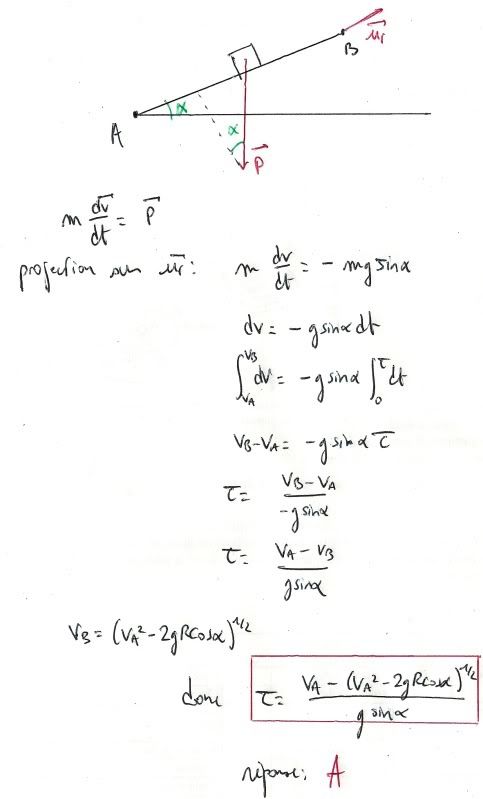 B
u⃗r
α
A
α
P⃗
m dv⃗/dt = P⃗
projection sur u⃗r : m dv/dt = - mg sinα
dv = - g sinα dt
∫_{VA}^{VB} dv = - g sinα ∫_0^τ dt
VB - VA = - g sinα τ
τ = (VB - VA)/(-g sinα)
τ = (VA - VB)/(g sinα)
VB = (VA² - 2gR cosα)^{1/2}
donc τ = (VA - (VA² - 2gR cosα)^{1/2})/(g sinα)
réponse : A